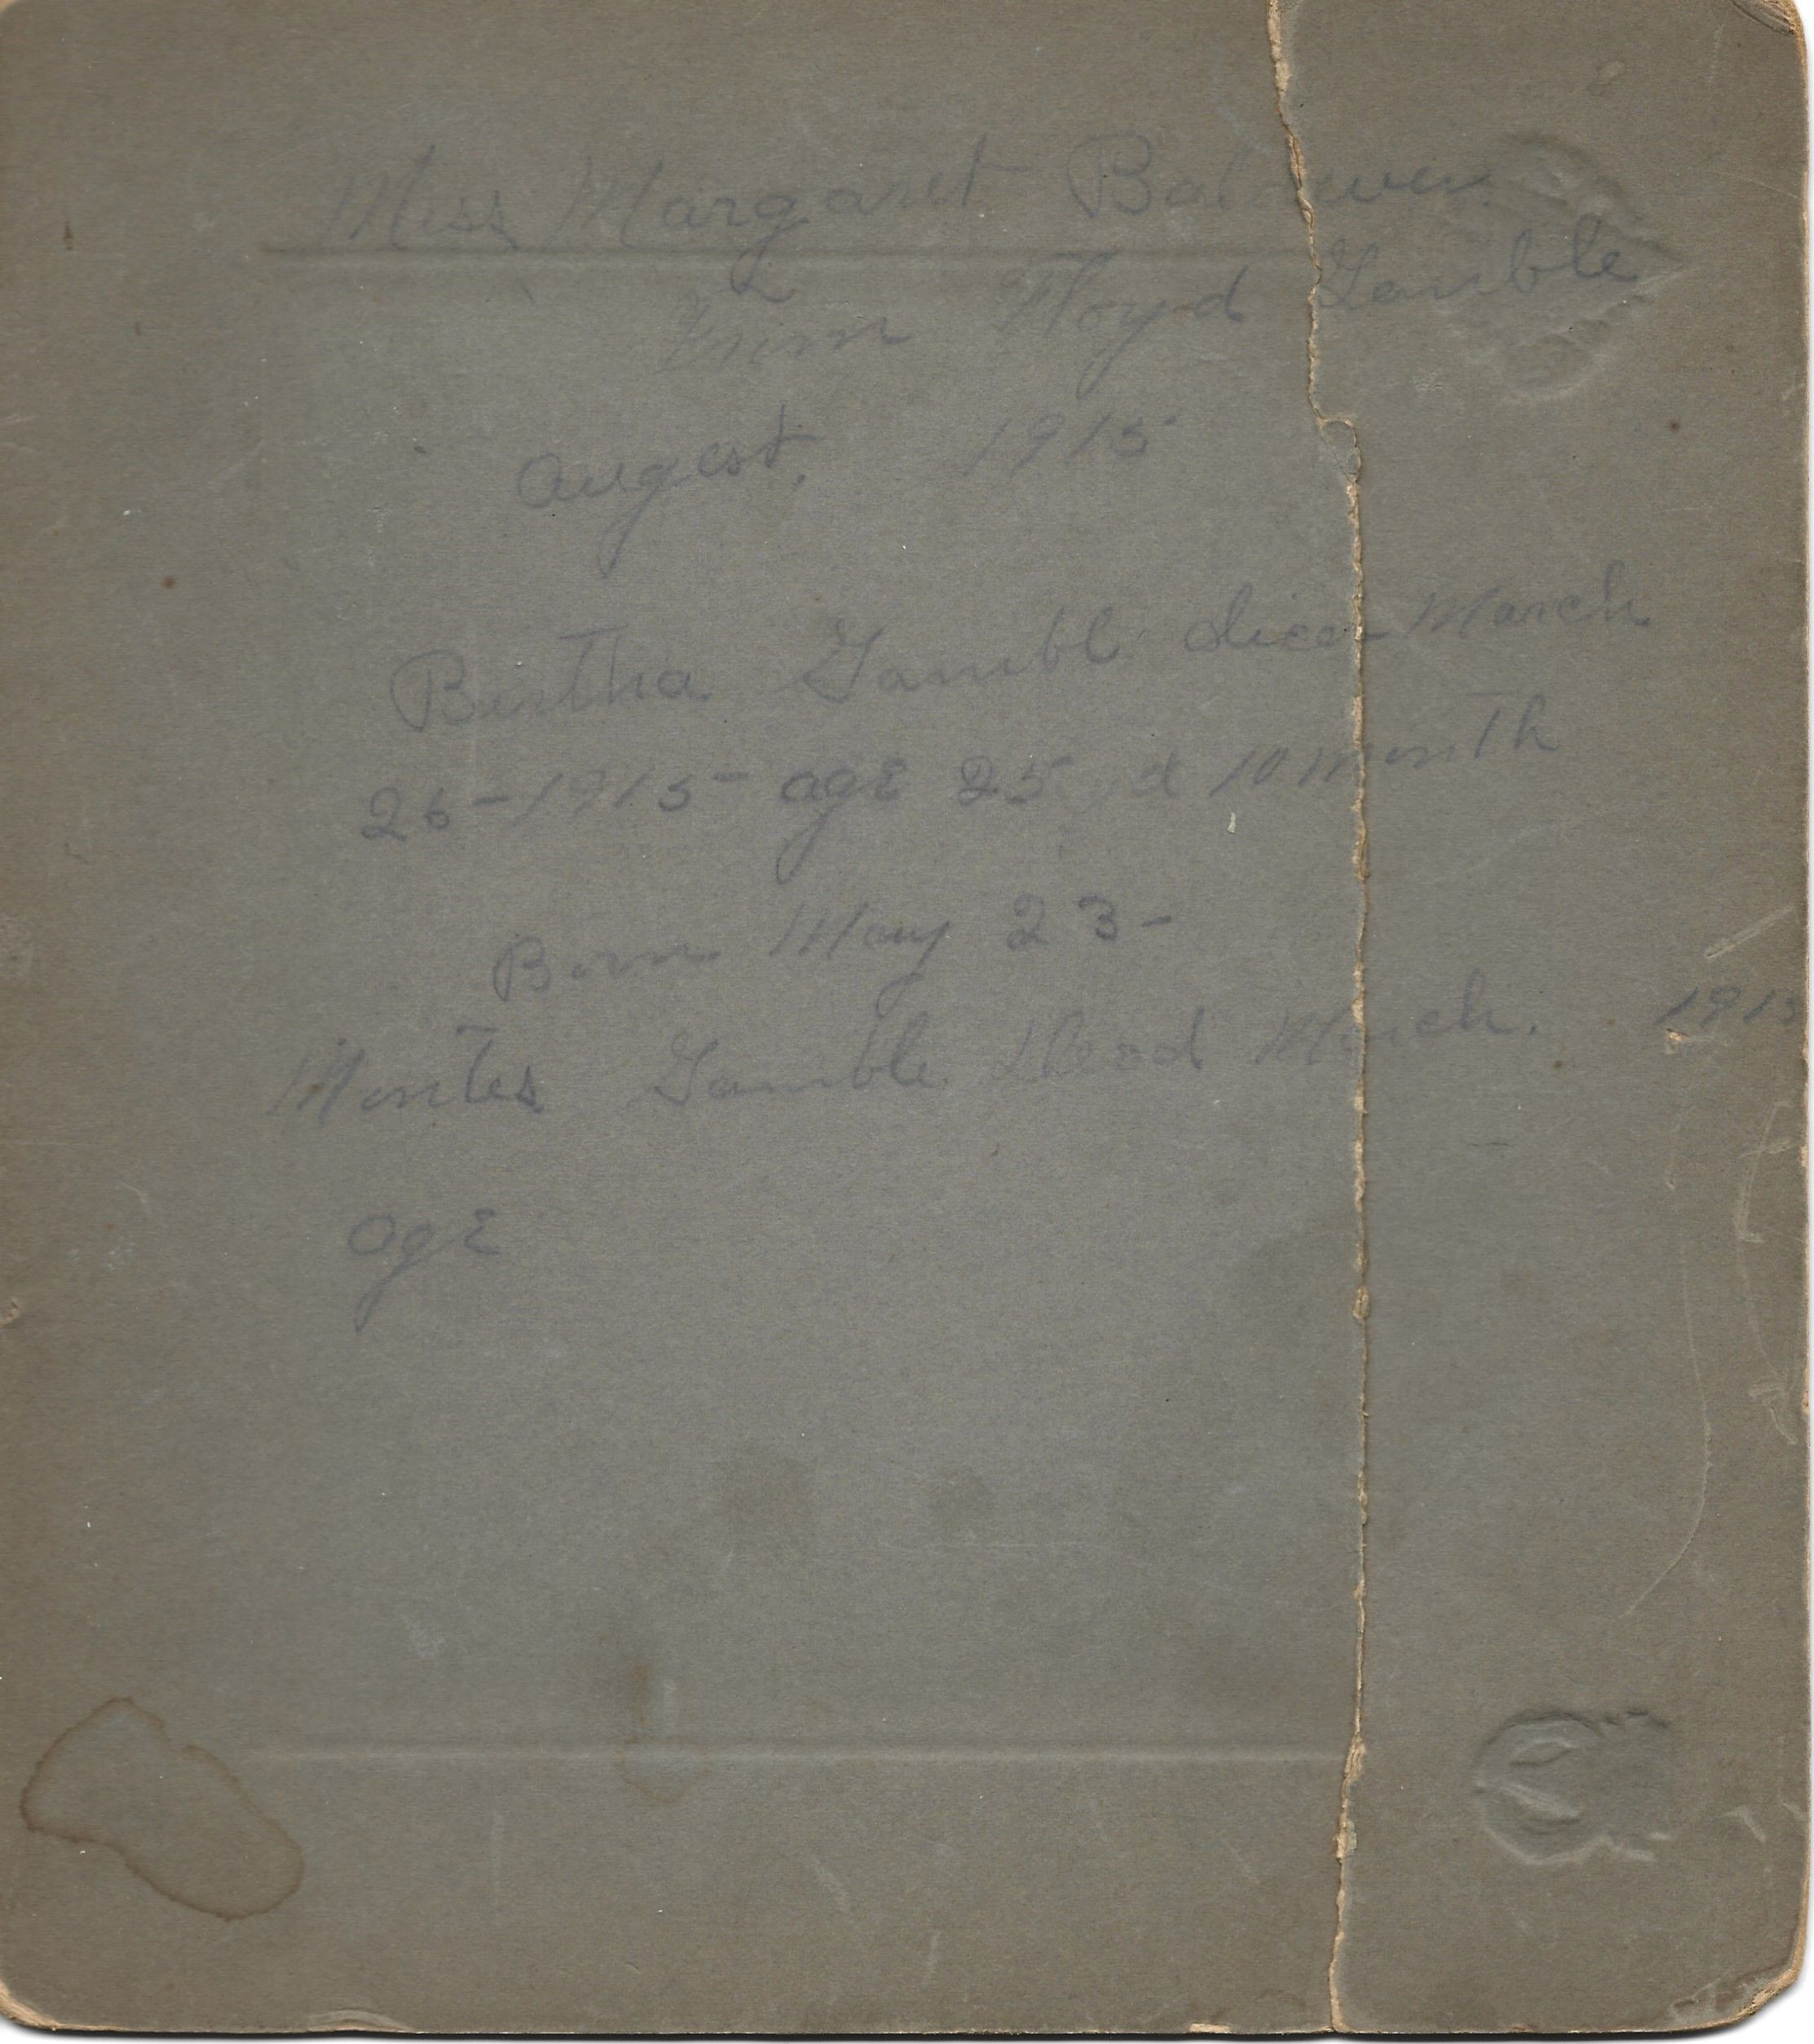 Miss Margaret
From Floyd Gamble
August, 1915
Bertha Gambl March
26-1915- age 25 10 month
Born May 23-
Gamble March. 191
age